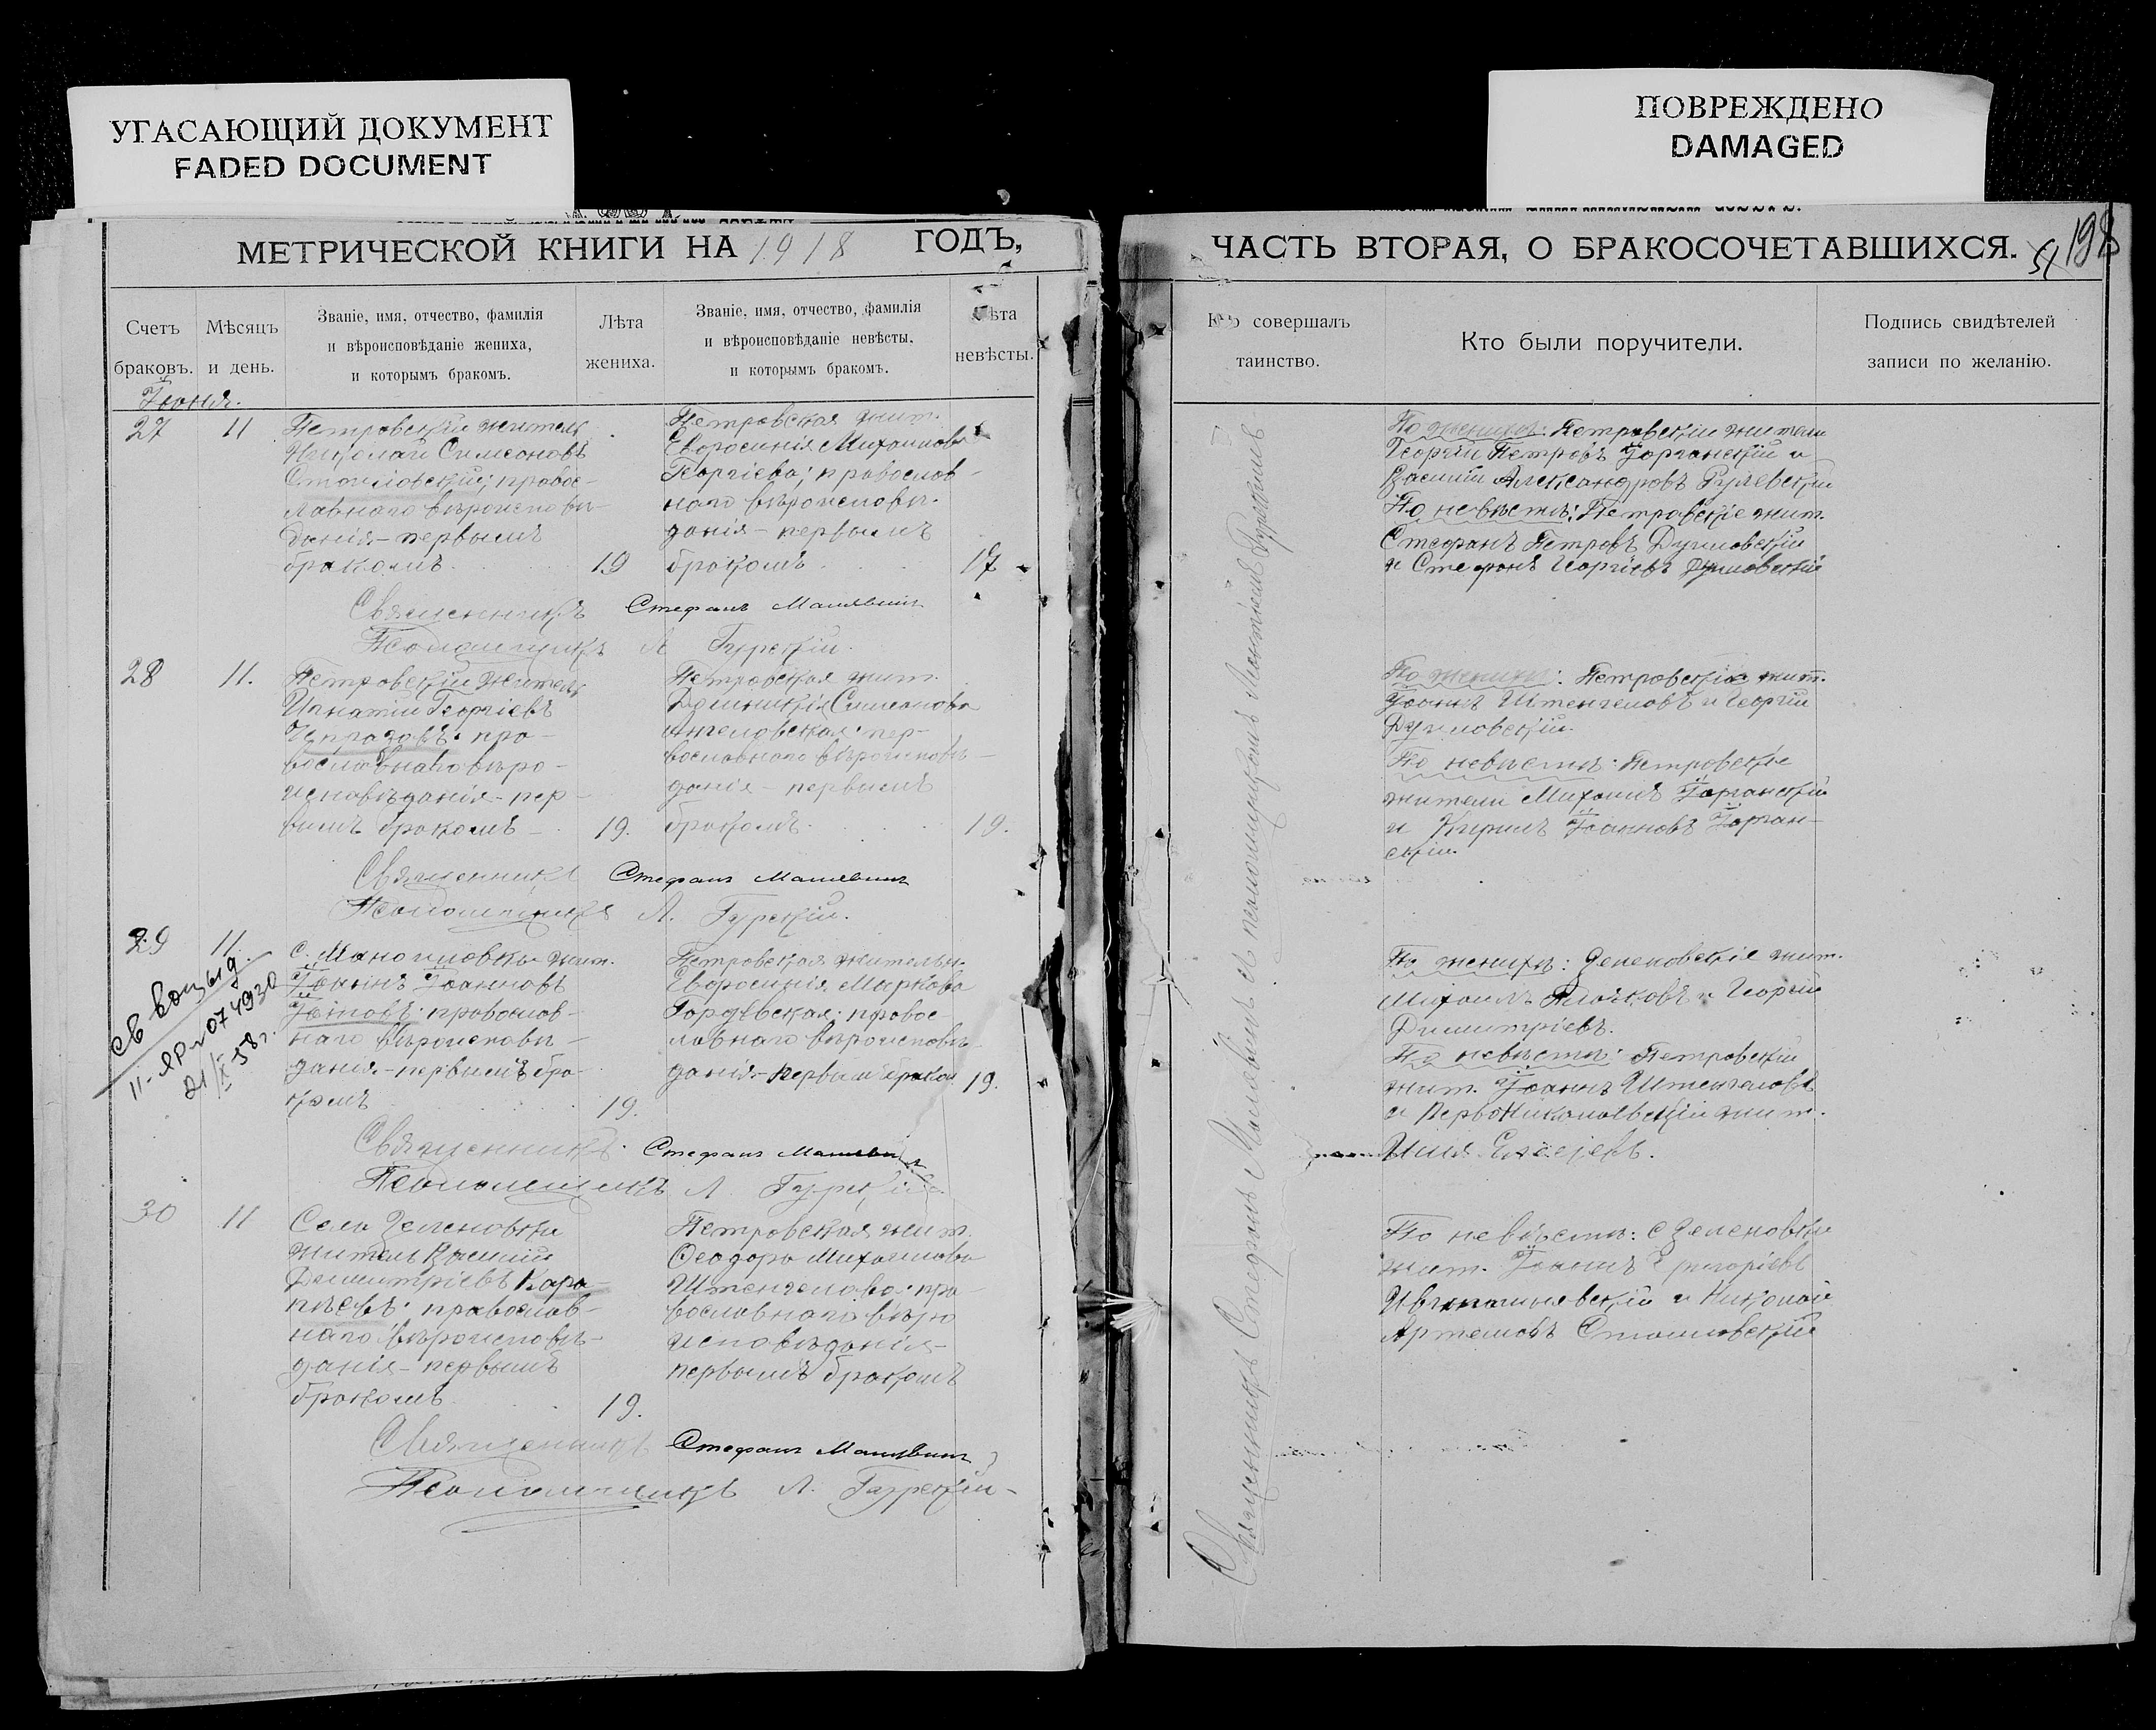 УГАСАЮЩИЙ ДОКУМЕНТ
FADED DOCUMENT
ПОВРЕЖДЕНО
DAMAGED
МЕТРИЧЕСКОЙ КНИГИ НА 1918 ГОДЪ,
Счетъ браковъ.
Мѣсяцъ и день.
Званіе, имя, отчество, фамилія
и вѣроисповѣданіе жениха,
и которымъ бракомъ.
Лѣта
жениха.
Званіе, имя, отчество, фамилія
и вѣроисповѣданіе невѣсты,
и которымъ бракомъ.
Лѣта
невѣсты.
Іюня.
27
11
Петровскій житель
Николай Симеоновъ
Стоиловскій; правос-
лавнаго вѣроисповѣ-
данія - первымъ
бракомъ.
19
Петровская жит.
Евросинія Михаилова
Георгіева; православ-
наго вѣроисповѣ-
данія - первымъ
бракомъ
17
Священникъ Стефанъ
Псаломщикъ Л Гурскій.
28
11.
Петровскій житель
Игнатій Георгіевъ
про-
вославнаго вѣро-
исповѣданія - пер-
вымъ бракомъ
19.
Петровская жит.
Симеонова
вославнаго вѣроисповѣ-
данія - первымъ
бракомъ
19.
Священникъ Стефанъ
Псаломщикъ Л. Гурскій.
29
11.
св выд.
II-ЯР №074930
21/X 58 г.
с. Манойловки жит.
Іоаннъ Іоанновъ
православ-
наго вѣроисповѣ-
данія - первымъ бра-
комъ
19.
Петровская жительн.
Евросинія Маркова
правос-
лавнаго вѣроисповѣ-
данія - первымъ браком
19.
Священникъ Стефанъ
Псаломщикъ Л Гурскій
30
11
Села Зеленовки
житель Василій
Димитріевъ Кара-
православ-
наго вѣроисповѣ-
данія - первымъ
бракомъ
19.
Петровская жит.
Феодора Михаилова
Иштенгелова: пра-
вославнаго вѣро
исповѣданія -
первымъ бракомъ
Священникъ Стефанъ
Псаломщикъ Л. Гурскій
ЧАСТЬ ВТОРАЯ, О БРАКОСОЧЕТАВШИХСЯ.
51
198
Кто совершалъ
таинство.
Кто были поручители.
Подпись свидѣтелей
записи по желанію.
Священникъ Стефанъ съ псаломщикомъ Леонтіемъ Гурскимъ
По женихѣ: Петровскіи жители
Георгій Петровъ Іорганскій и
Василій Александровъ Рулевскій
По невѣстѣ: Петровскіе жит.
Стефанъ Петровъ Думловскій
и Стефанъ Георгіевъ Думловскій
По женихѣ: Петровскіе жит.
Іоаннъ Иштенгеловъ и Георгій
Думловскій.
По невѣстѣ: Петровскіе
жители Михаилъ Іорганскій
и Кирилъ Іоанновъ Іорган-
скій.
По женихѣ: Зеленовскіе жит.
Михаилъ и Георгій
Димитріевъ.
По невѣстѣ: Петровскій
жит. Іоаннъ Иштенгеловъ
и ПервоНиколаевскій жит.
Илія
По невѣстѣ: с Зеленовки
жит. Іоаннъ Григоріевъ
и Николай
Артемовъ Стоиловскій